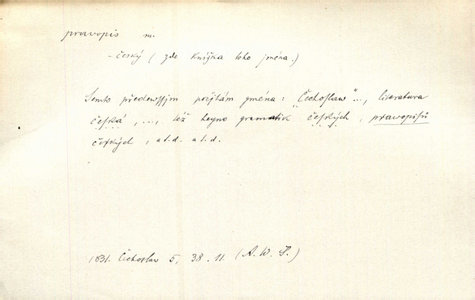 pravopis m.
- český ( zde knížka toho jména.)
Semto předewssjm počjtám jména: "Čechoslaw"..., literatura
česká, ..., též hogno gramatik českých, prawopisů
českých, a t. d. a t. d.
1831. Čechoslav 5, 38. II. (A. W. S.)